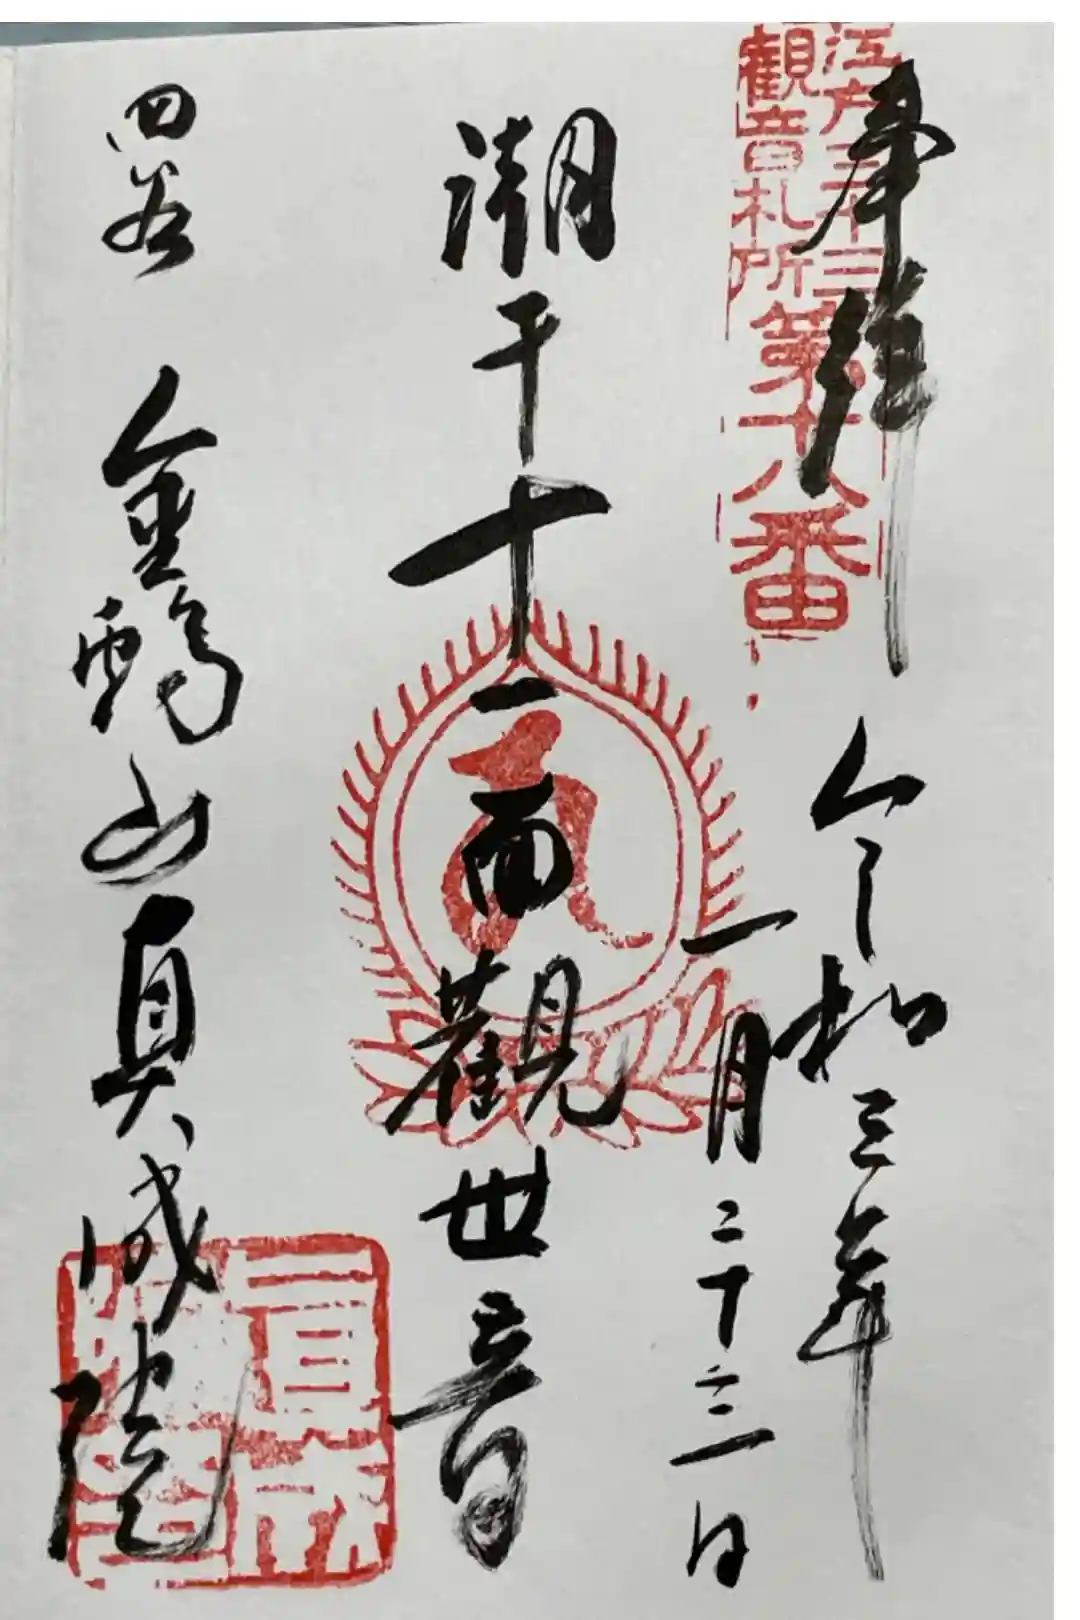 奉拝
江戸三十三
観音札所
第十八番
令和三年
一月二十三日
潮干十一面觀世音
四谷 金鶏山真成院